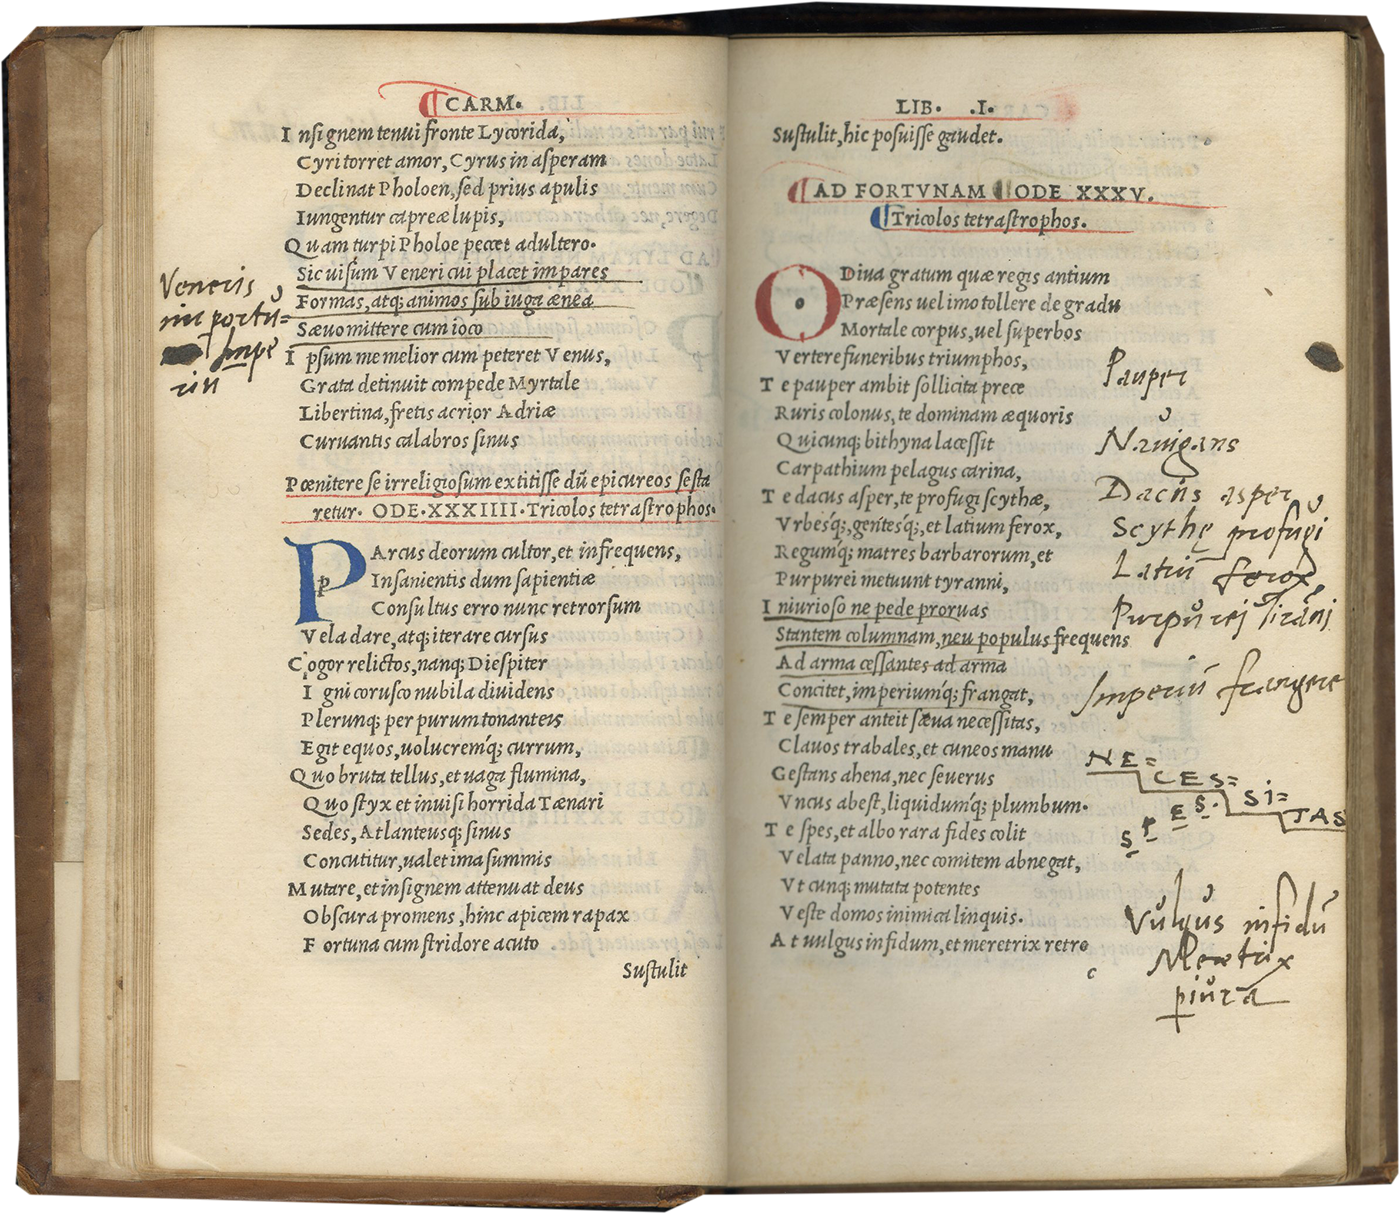 CARM.
Insignem tenui fronte Lycorida,
Cyri torret amor, Cyrus in asperam
Declinat Pholoen, sed prius apulis
Iungentur capreæ lupis,
Quam turpi Pholoe peccet adultero.
Sic uisum Veneri cui placet impares
Formas, atq; animos sub iuga ænea
Sæuo mittere cum ioco
Ipsum me melior cum peteret Venus,
Grata detinuit compede Myrtale
Libertina, fretis acrior Adriæ
Curuantis calabros sinus
Pœnitere se irreligiosum extitisse dũ epicureos secta
retur. ODE.XXXIIII.Tricolos tetrastrophos.
PArcus deorum cultor, et infrequens,
p
Insanientis dum sapientiæ
Consultus erro nunc retrorsum
Vela dare, atq; iterare cursus
Cogor relictos, nanq; Diespiter
Igni corusco nubila diuidens
Plerunq; per purum tonanteis
Egit equos, uolucremq́; currum,
Quo bruta tellus, et uaga flumina,
Quo styx et inuisi horrida Tænari
Sedes, Atlanteusq; sinus
Concutitur, ualet ima summis
Mutare, et insignem attenuat deus
Obscura promens, hinc apicem rapax
Fortuna cum stridore acuto
Sustulit
Veneris
importũ=
Impe
riũ
LIB. .I.
Sustulit, hic posuisse gaudet.
AD FORTVNAM ODE XXXV.
Tricolos tetrastrophos.
O Diua gratum quæ regis antium
Præsens uel imo tollere de gradu
Mortale corpus, uel superbos
Vertere funeribus triumphos,
Te pauper ambit sollicita prece
Ruris colonus, te dominam æquoris
Quicunq; bithyna lacessit
Carpathium pelagus carina,
Te dacus asper, te profugi scythæ,
Vrbesq́;, gentesq́;, et latium ferox,
Regumq́; matres barbarorum, et
Purpurei metuunt tyranni,
Iniurioso ne pede proruas
Stantem columnam, neu populus frequens
Ad arma cessantes ad arma
Concitet, imperiumq́; frangat,
Te semper anteit sæua necessitas,
Clauos trabales, et cuneos manu
Gestans ahena, nec seuerus
Vncus abest, liquidumq́; plumbum.
Te spes, et albo rara fides colit
Velata panno, nec comitem abnegat,
Vt cunq; mutata potentes
Veste domos inimica linquis.
At uulgus infidum, et meretrix retro
c
Pauper
Nauigans
Dacus asper
Scythę profugi
Latiũ ferox
Purpurei Tirãni
Imperiũ frangere
NE=
CES=
SI=
TAS
SPES.
Vulgus infidũ
Meretrix